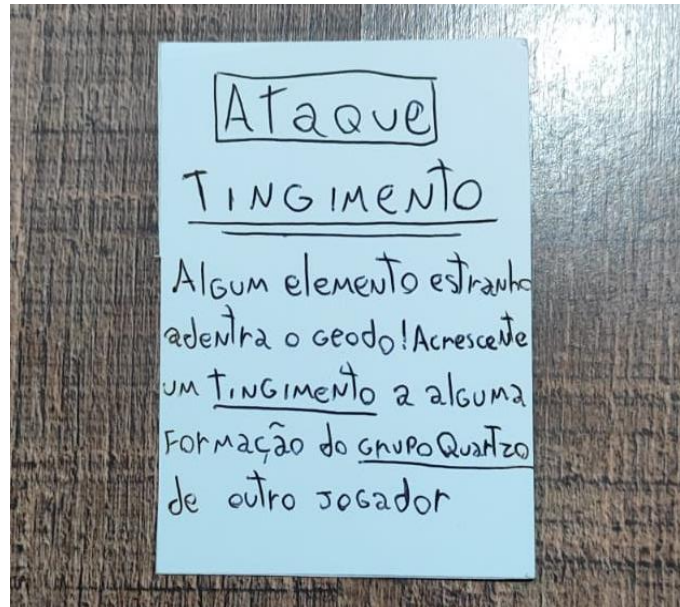 Ataque
TINGIMENTO
Algum elemento estranho
adentra o geodo! Acrescente
um TINGIMENTO a alguma
Formação do GRUPO QUARTZO
de outro JOGADOR